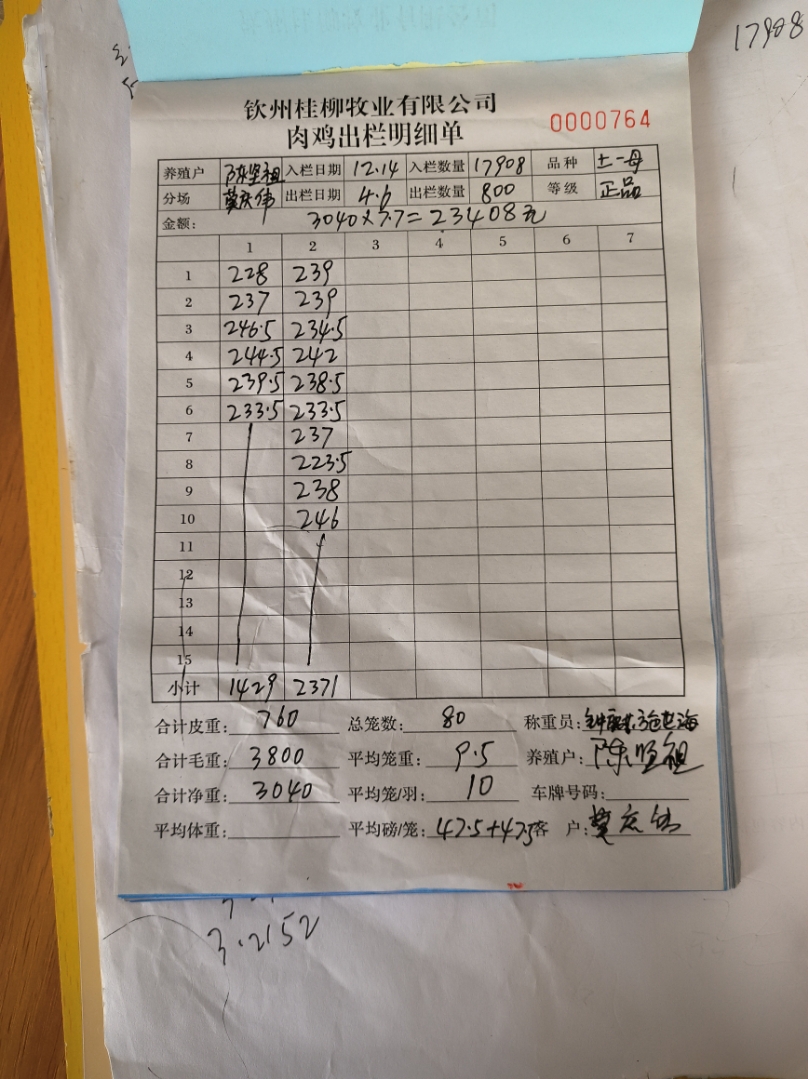 17908
钦州桂柳牧业有限公司
肉鸡出栏明细单
0000764
养殖户 陈坚祖 入栏日期 12.14 入栏数量 17908 品种 土一母
分场 莫庆伟 出栏日期 4.6 出栏数量 800 等级 正品
金额: 3040×7.7=23408元
1 2 3 4 5 6 7
1 228 239
2 237 239
3 246.5 234.5
4 244.5 242
5 239.5 238.5
6 233.5 233.5
7 237
8 223.5
9 238
10 246
11
12
13
14
15
小计 1429 2371
合计皮重: 760 总笼数: 80 称重员:
合计毛重: 3800 平均笼重: 9.5 养殖户: 陈坚祖
合计净重: 3040 平均笼/羽: 10 车牌号码:
平均体重: 平均磅/笼: 47.5+47.5 客户:
3.2152